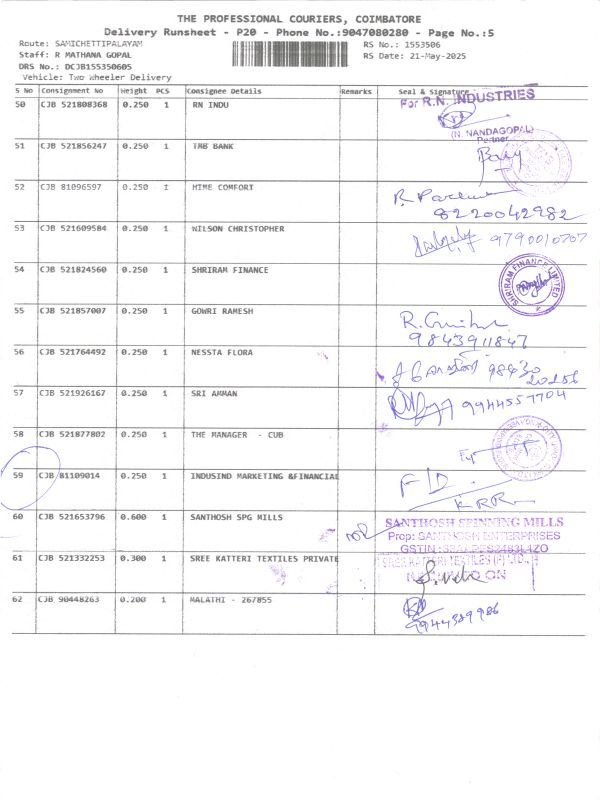 THE PROFESSIONAL COURIERS, COIMBATORE
Delivery Runsheet - P20 - Phone No.:9047080280 - Page No.:5
Route: SAMICHETTIPALAYAM RS No.: 1553506
Staff: R MATHANA GOPAL RS Date: 21-May-2025
DRS No.: DCJB155350605
Vehicle: Two Wheeler Delivery
S No Consignment No Weight PCS Consignee Details Remarks Seal & Signature
50 CJB 521808368 0.250 1 RN INDU For R.N. INDUSTRIES
(N. NANDAGOPAL)
Partner
51 CJB 521856247 0.250 1 TMB BANK
52 CJB 81096597 0.250 1 HIME COMFORT
8220042982
53 CJB 521609584 0.250 1 WILSON CHRISTOPHER 9790010707
54 CJB 521824560 0.250 1 SHRIRAM FINANCE SHRIRAM FINANCE LIMITED
55 CJB 521857007 0.250 1 GOWRI RAMESH
9843911847
56 CJB 521764492 0.250 1 NESSTA FLORA 98430
20256
57 CJB 521926167 0.250 1 SRI AMMAN 9944557704
58 CJB 521877802 0.250 1 THE MANAGER - CUB
59 CJB 81109014 0.250 1 INDUSIND MARKETING &FINANCIAL
60 CJB 521653796 0.600 1 SANTHOSH SPG MILLS SANTHOSH SPINNING MILLS
Prop: SANTHOSH ENTERPRISES
GSTIN
61 CJB 521332253 0.300 1 SREE KATTERI TEXTILES PRIVATE SREE KATTERI TEXTILES (P) LTD.,
62 CJB 90448263 0.200 1 MALATHI - 267855
9944389986